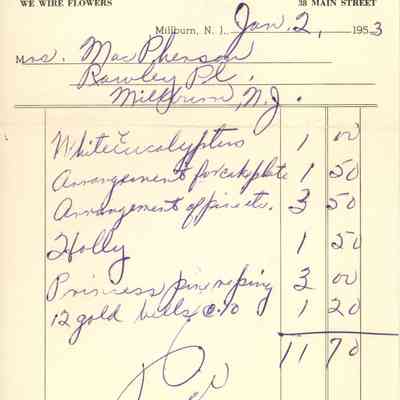 WE WIRE FLOWERS 38 MAIN STREET
Millburn, N. J. Jan. 2, 1953
Mrs. MacPherson
Rawley Pl.
Millburn, N.J.
White Eucalyptus 1 00
Arrangement for cakeplate 1 50
Arrangement of pine etc. 3 50
Holly 1 50
Princess pine roping 3 00
12 gold bells @.10 1 20
11 70
Pd